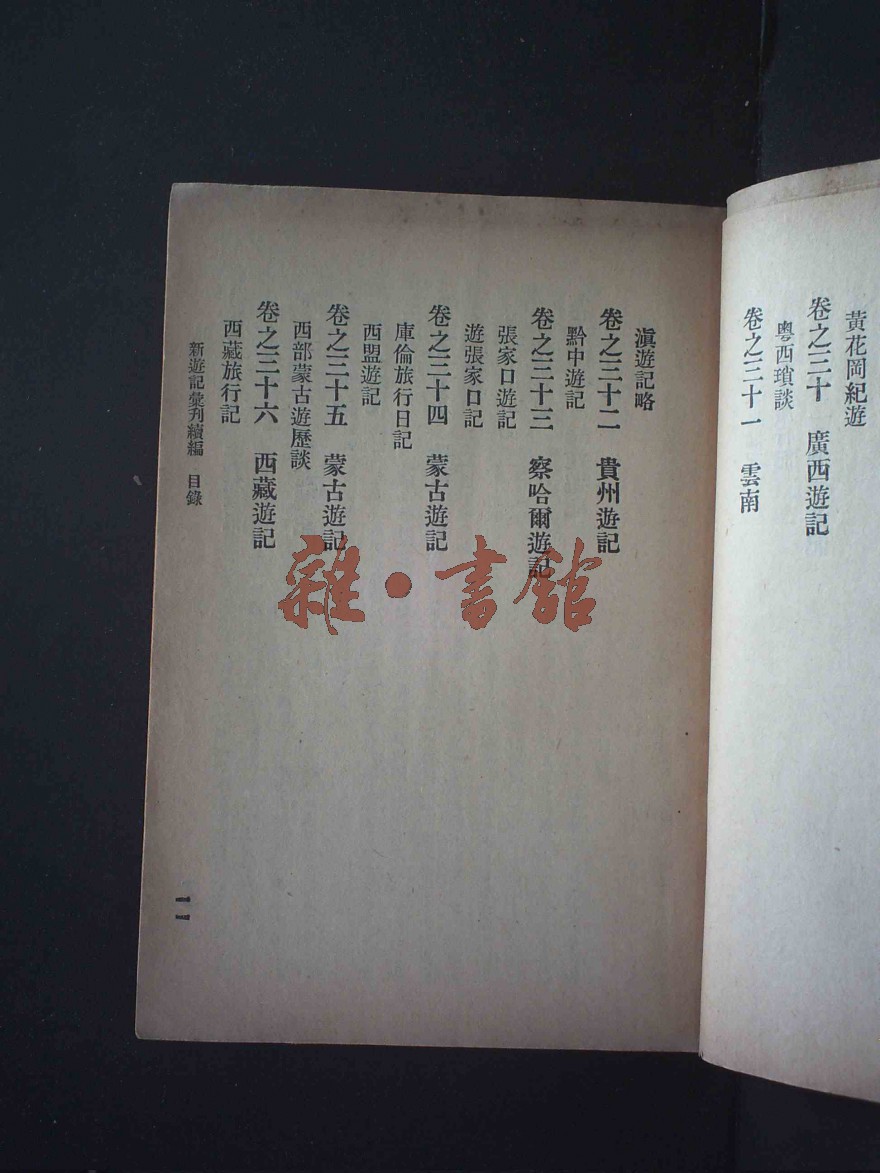 黃花岡紀遊
卷之三十 廣西遊記
粵西瑣談
卷之三十一 雲南
滇遊記略
卷之三十二 貴州遊記
黔中遊記
卷之三十三 察哈爾遊記
張家口遊記
遊張家口記
卷之三十四 蒙古遊記
庫倫旅行日記
西盟遊記
卷之三十五 蒙古遊記
西部蒙古遊歷談
卷之三十六 西藏遊記
西藏旅行記
新遊記彙刋續編 目錄
一一
雜·書館